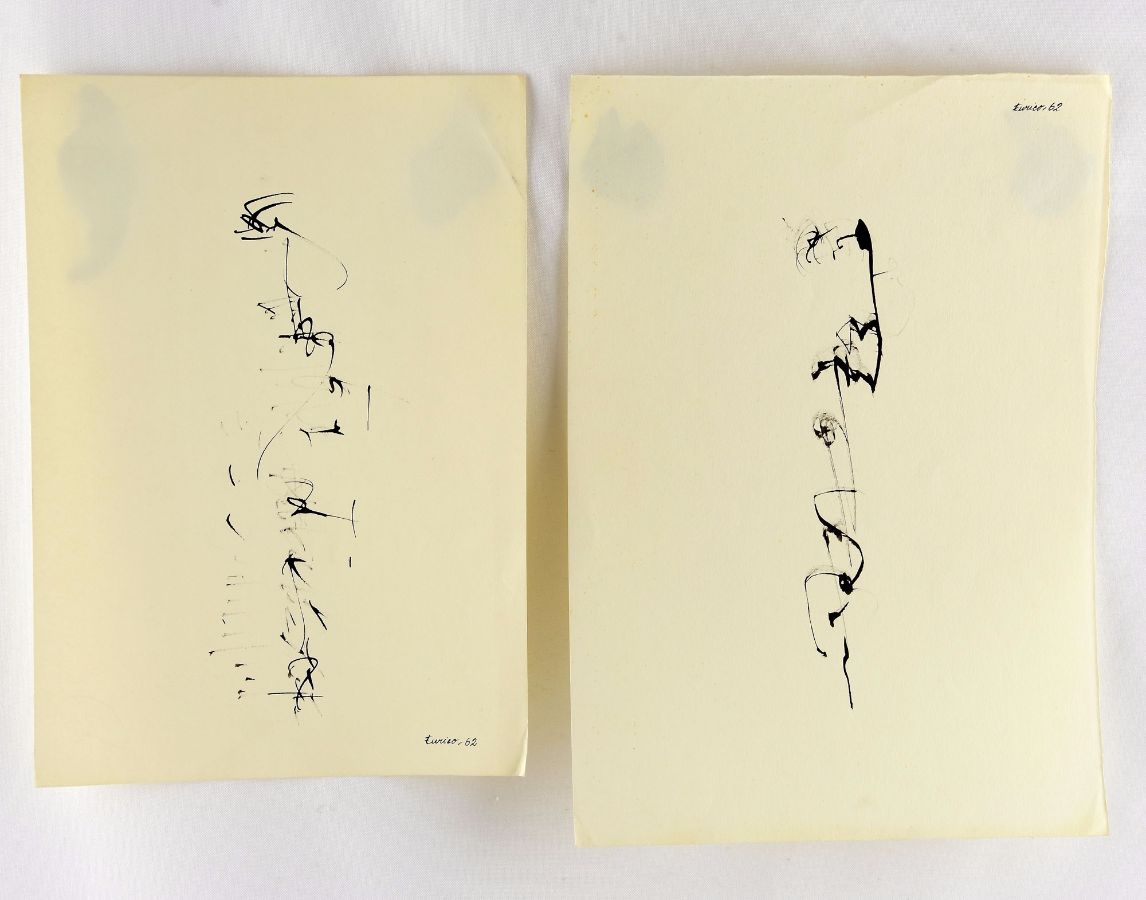 Eurico. 62
Eurico. 62